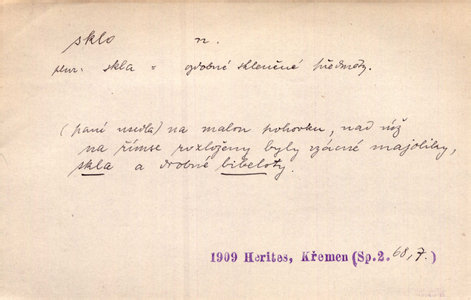 sklo n.
plur. skla = ozdobné skleněné předměty.
(paní usedla) na malou pohovku, nad níž
na římse rozloženy byly vzácné majoliky,
skla a drobné bibeloty.
1909 Herites, Křemen (Sp.2. 68,7.)